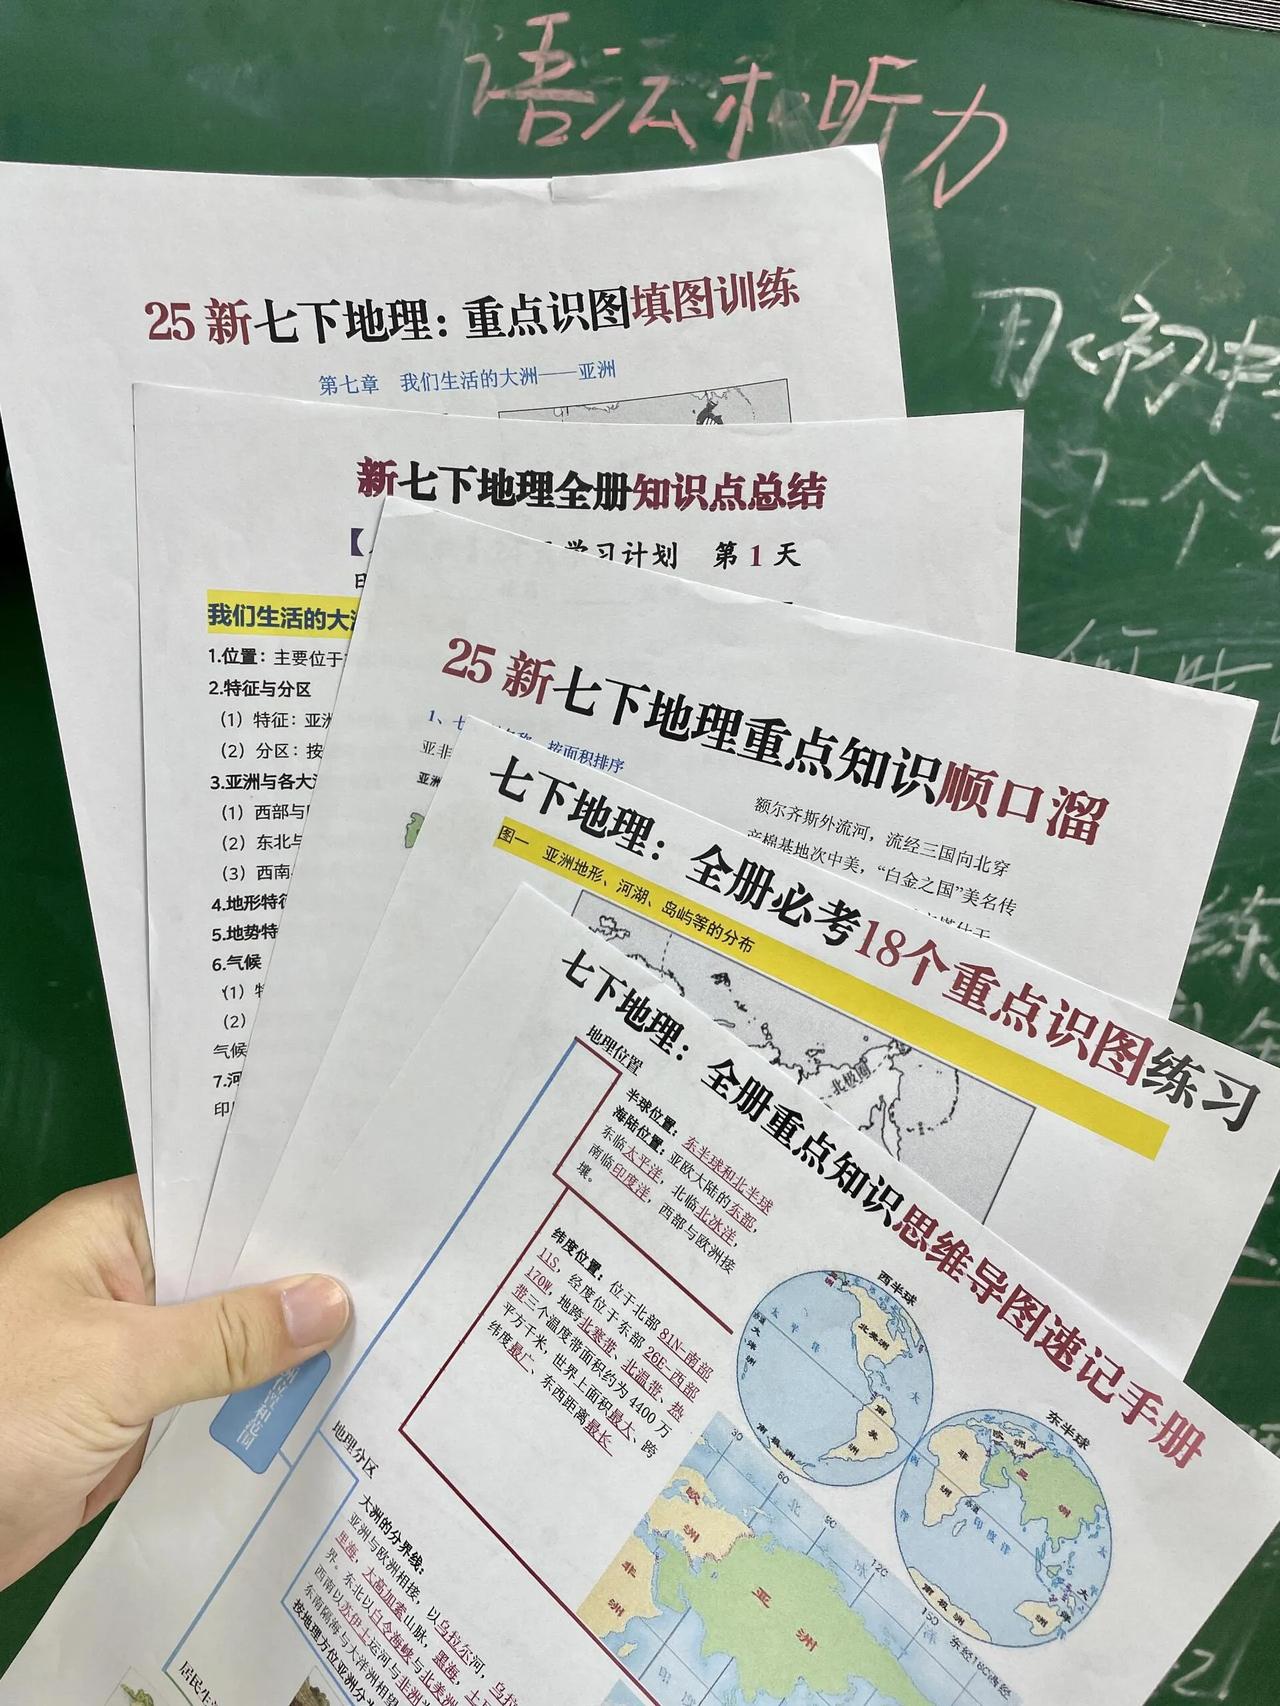 语法和听力
用初中
习一个
练
25新七下地理：重点识图填图训练
第七章 我们生活的大洲——亚洲
新七下地理全册知识点总结
【
学习计划 第1天
我们生活的大
1.位置：主要位于
2.特征与分区
（1）特征：亚洲
（2）分区：按
3.亚洲与各大
（1）西部与
（2）东北与
（3）西南
4.地形特征
5.地势特
6.气候
（1）特
（2）
气候
7.河
印
25新七下地理重点知识顺口溜
1、七
按面积排序
亚非
亚洲
额尔齐斯外流河，流经三国向北穿
产棉基地次中美，“白金之国”美名传
七下地理：全册必考18个重点识图练习
图一 亚洲地形、河湖、岛屿等的分布
北极圈
七下地理：全册重点知识思维导图速记手册
地理位置
半球位置：东半球和北半球
海陆位置：亚欧大陆的东部，
东临太平洋，北临北冰洋，
南临印度洋，西部与欧洲接
壤。
纬度位置：位于北部81N-南部
11S，经度位于东部26E-西部
170W，地跨北寒带、北温带、热
带三个温度带面积约为4400万
平方千米，世界上面积最大、跨
纬度最广、东西距离最长
西半球
太平洋
大洋洲
北美洲
南美洲
南极洲
大
西
洋
东半球
欧洲
非洲
亚洲
印度洋
太
大洋洲
南极洲
东经180°西经
30
60
90
120
150
北
冰
洋
欧洲
非洲
亚洲
印
位置和范围
地理分区
大洲的分界线：
亚洲与欧洲相接，以乌拉尔河，乌拉
里海，大高加索山脉，黑海，土
界。东北以白令海峡与北美洲
西南以苏伊士运河与非洲
东南隔海与大洋洲相望
按地理方位亚洲分为
居民生